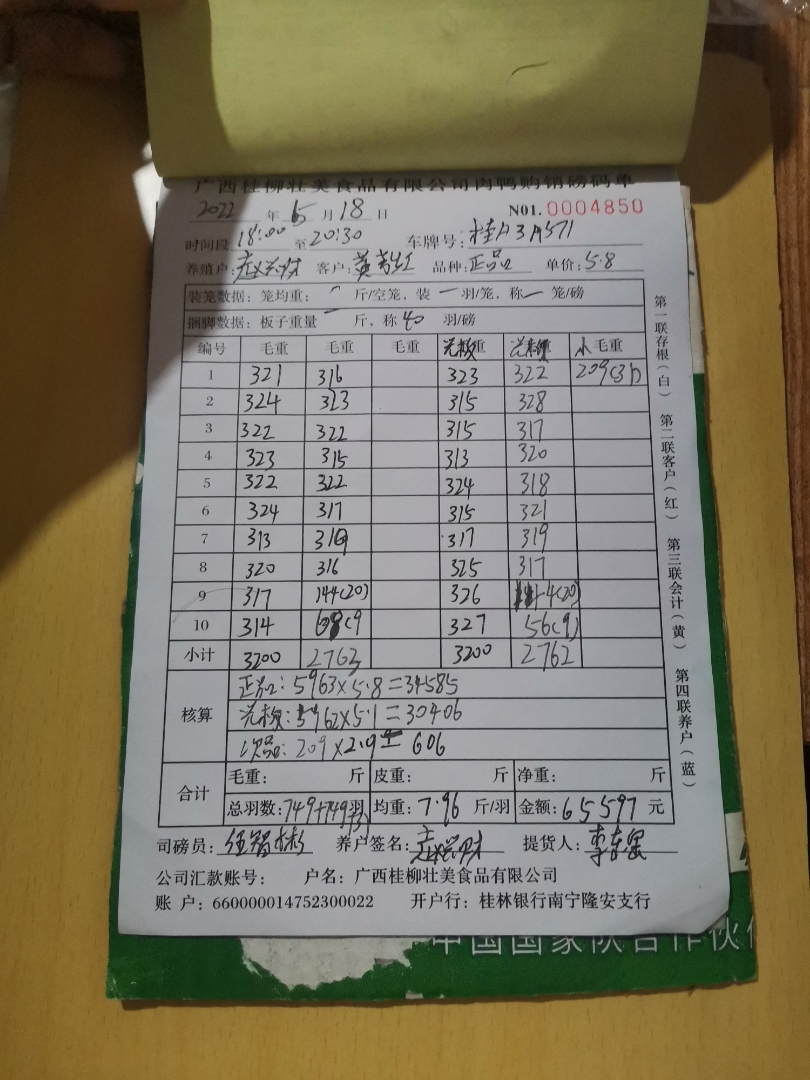 广西桂柳壮美食品有限公司肉鸭购销磅码单
2022 年 5 月 18 日 N01. 0004850
时间段 18:00 至 20:30 车牌号: 桂A3A571
养殖户: 客户: 品种: 正品 单价: 5.8
装笼数据: 笼均重: 斤/空笼, 装 一 羽/笼, 称 一 笼/磅
捆脚数据: 板子重量 一 斤, 称 40 羽/磅
编号 毛重 毛重 毛重 毛重
1 321 316 323 322 209(31)
2 324 323 315 328
3 322 322 315 317
4 323 315 313 320
5 322 322 324 318
6 324 317 315 321
7 313 319 317 319
8 320 316 325 317
9 317 144(20) 326
10 314 68(9 327 56(9)
小计 3200 2763 3200 2762
核算
正品: 5963×5.8=34585
5962×5.1=30406
次品: 209×2.9= 606
合计
毛重: 斤 皮重: 斤 净重: 斤
总羽数: 749+749+31 羽 均重: 7.96 斤/羽 金额: 65597 元
司磅员: 养户签名: 提货人:
公司汇款账号: 户名: 广西桂柳壮美食品有限公司
账 户: 660000014752300022 开户行: 桂林银行南宁隆安支行
第一联存根(白) 第二联客户(红) 第三联会计(黄) 第四联养户(蓝)
中国国家队合作伙伴